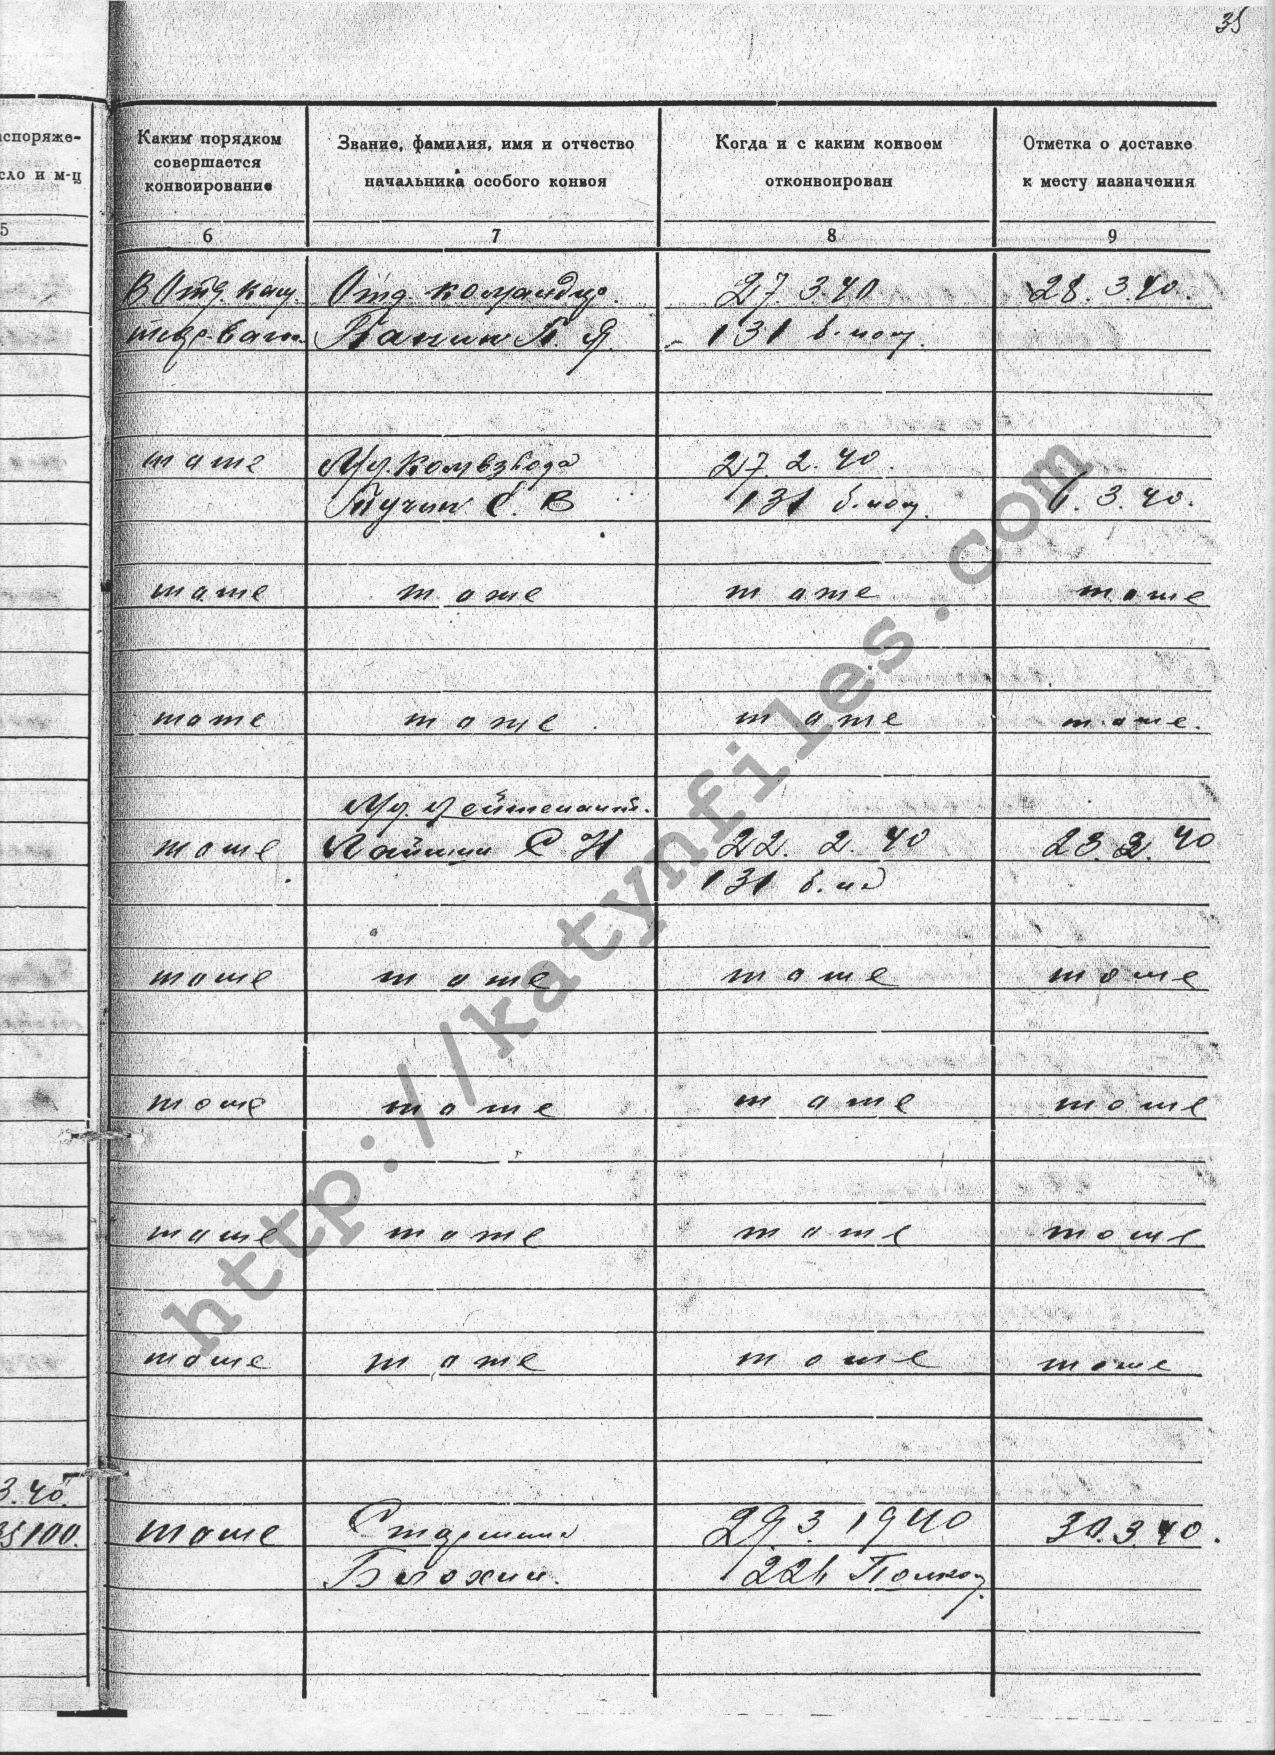 35
аспоряже-
сло и м-ц
5
Каким порядком
совершается
конвоирование
Звание, фамилия, имя и отчество
начальника особого конвоя
Когда и с каким конвоем
отконвоирован
Отметка о доставке
к месту назначения
6 7 8 9
В Отд. Отд. командир. 27. 3.40 28. 3.40.
131 б-ном.
тоже Мл. Комвзвода 27. 2. 40.
Тучин С. В 131 б-ном. 1. 3. 40.
тоже тоже тоже тоже
тоже тоже тоже тоже.
Мл. Лейтенант.
тоже С Н 22. 2. 40 23. 2. 40
131 б-н
тоже тоже тоже тоже
тоже тоже тоже тоже
тоже тоже тоже тоже
тоже тоже тоже тоже
3.40.
35100. тоже Старшина 29. 3. 1940 30.3.40.
Блохин. Полком.
http://katynfiles.com